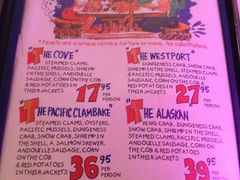 *Feasts are a unique service for two or more. No substitutions.
"THE COVE"
STEAMED CLAMS,
PACIFIC MUSSELS, SHRIMP
IN THE SHELL, ANDOUILLE
SAUSAGE, CORN ON THE COB
& RED POTATOES IN
THEIR JACKETS
17.95
PER
PERSON
"THE WESTPORT"
DUNGENESS CRAB, SNOW CRAB,
SHRIMP IN THE SHELL, STEAMED CLAMS,
PACIFIC MUSSELS, ANDOUILLE
SAUSAGE, CORN ON THE COB
& RED POTATOES
IN THEIR JACKETS
27.95
PER
PERSON
"THE PACIFIC CLAMBAKE"
STEAMED CLAMS, OYSTERS,
PACIFIC MUSSELS, DUNGENESS
CRAB, SNOW CRAB, SHRIMP IN
THE SHELL, A SALMON SKEWER,
ANDOUILLE SAUSAGE,
CORN ON THE COB
& RED POTATOES
IN THEIR JACKETS
36.95
PER
PERSON
"THE ALASKAN"
KING CRAB, DUNGENESS CRAB,
SNOW CRAB, SHRIMP IN THE
SHELL, STEAMED CLAMS, PACIFIC
MUSSELS, ANDOUILLE SAUSAGE,
CORN ON THE COB
& RED POTATOES
IN THEIR JACKETS
39.95
PER
PERSON